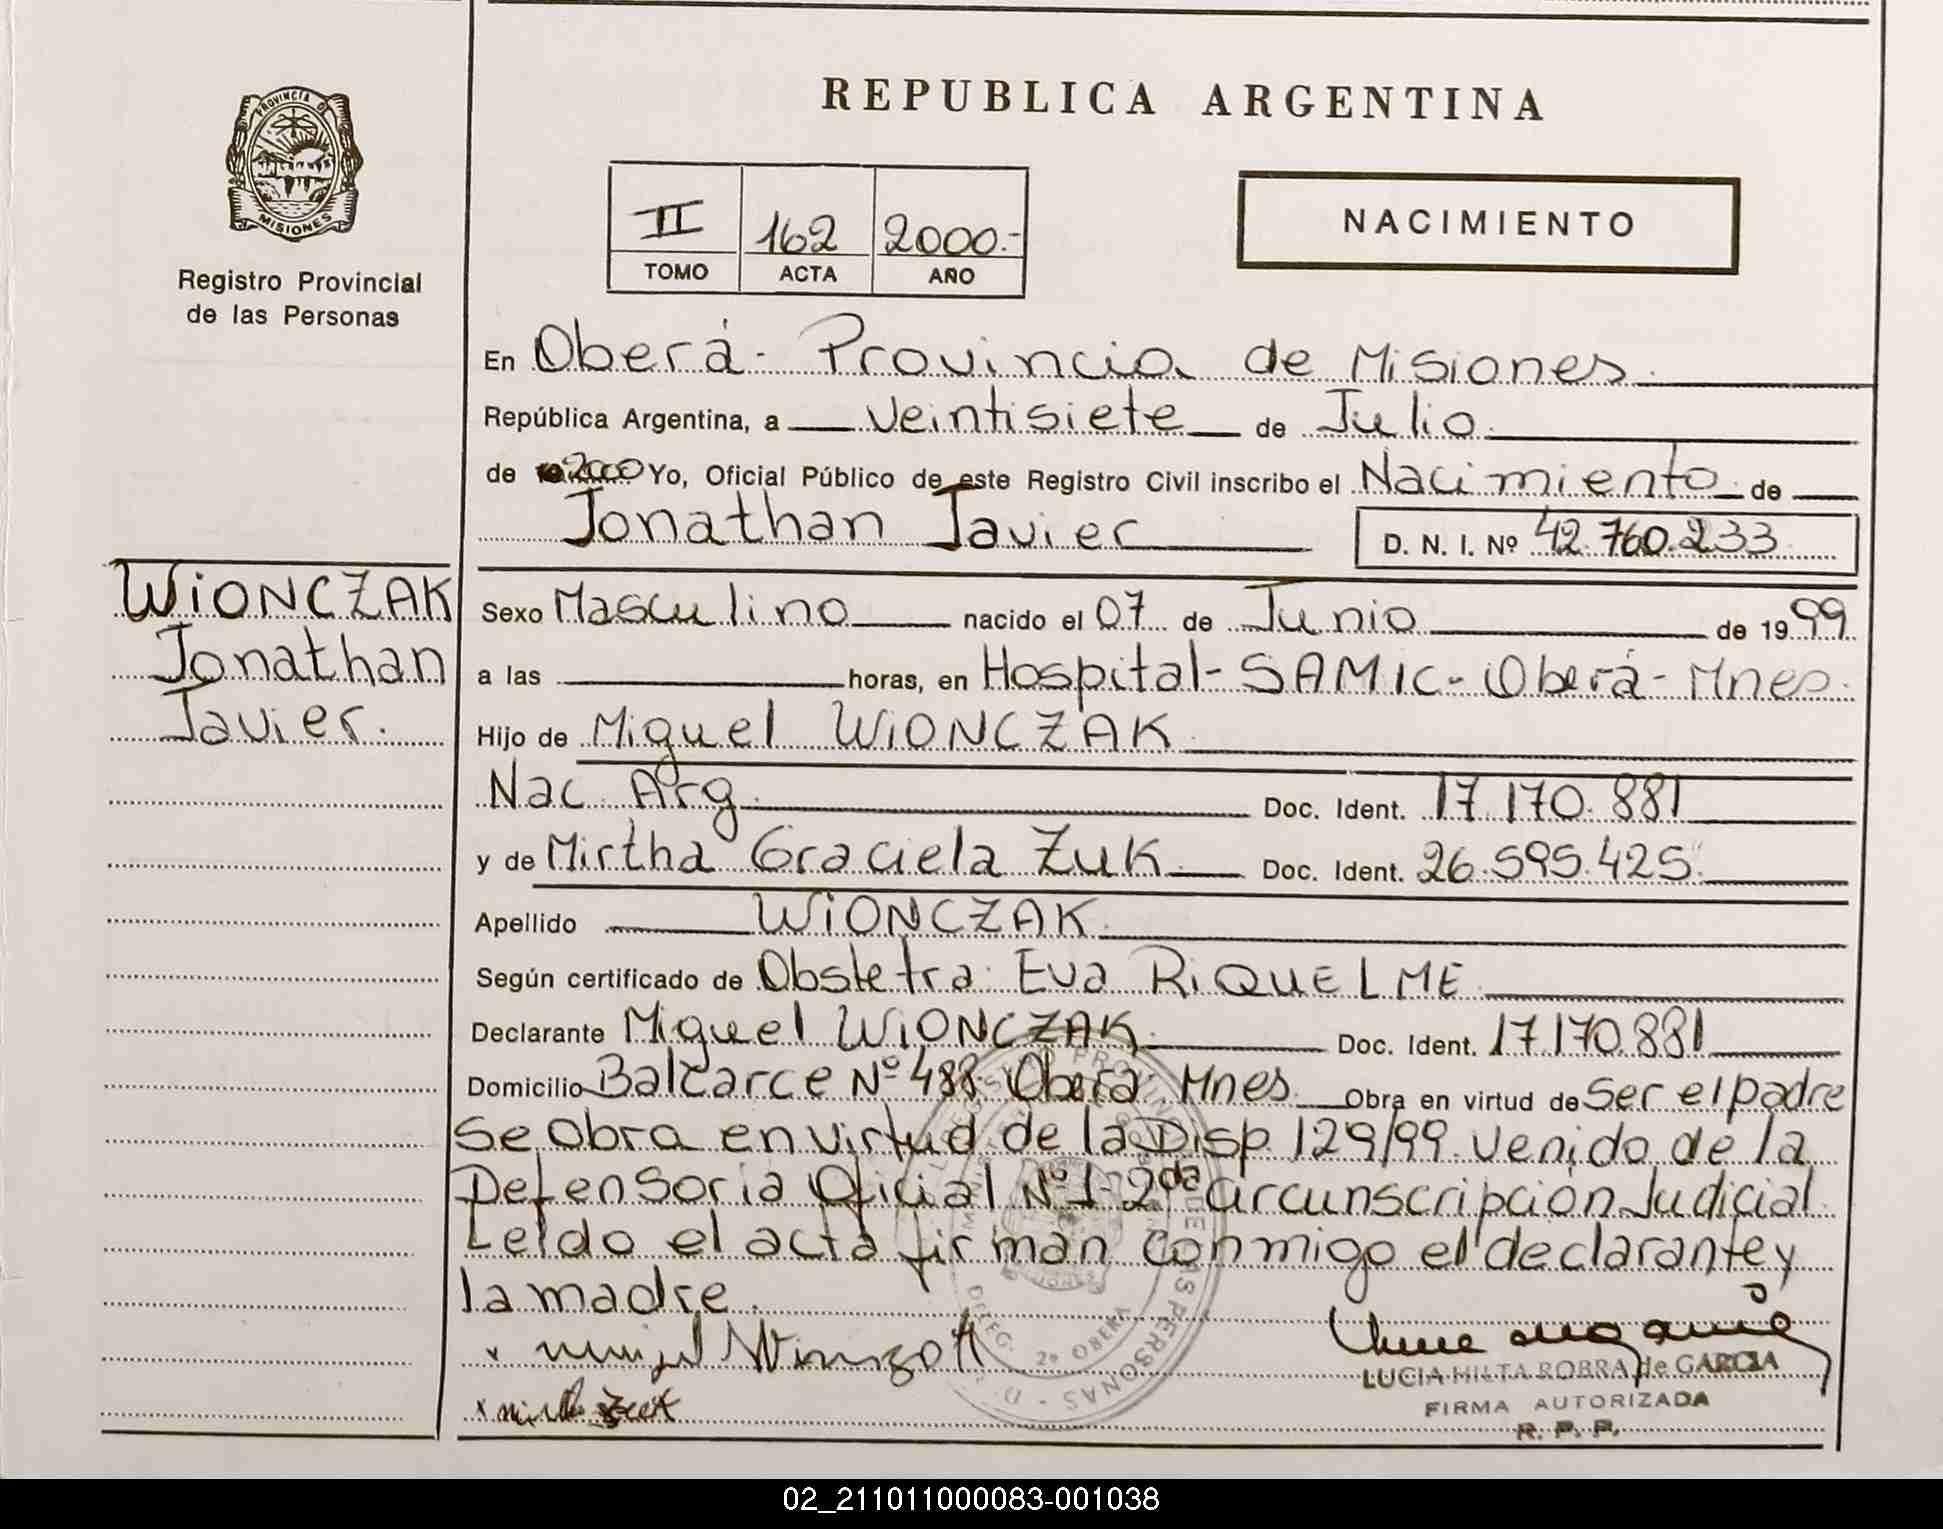 REPUBLICA ARGENTINA
PROVINCIA DE
MISIONES
Registro Provincial
de las Personas
II 162 2000.-
TOMO ACTA AÑO
NACIMIENTO
En Oberá - Provincia de Misiones.
República Argentina, a veintisiete de Julio
de 2000 Yo, Oficial Público de este Registro Civil inscribo el Nacimiento de
Jonathan Javier D. N. I. Nº 42.760.233
WiONCZAK
Jonathan
Javier.
Sexo Masculino nacido el 07 de Junio de 1999
a las horas, en Hospital - SAMIC - Oberá - Mnes.
Hijo de Miguel WiONCZAK
Nac. Arg. Doc. Ident. 17.170.881
y de Mirtha Graciela Zuk Doc. Ident. 26.595.425.
Apellido WiONCZAK.
Según certificado de Obstetra Eva RiQUELME
Declarante Miguel WiONCZAK. Doc. Ident. 17.170.881
Domicilio Balcarce Nº 488 Oberá Mnes. Obra en virtud de Ser el padre
Se obra en virtud de la Disp. 129/99 venido de la
Defensoria Oficial Nº 1- 2da Circunscripción Judicial.
Leido el acta firman conmigo el declarante y
la madre.
DELEG. 2ª OBERA
LUCIA HILTA ROBRA de GARCIA
FIRMA AUTORIZADA
R. P. P.
02_211011000083-001038